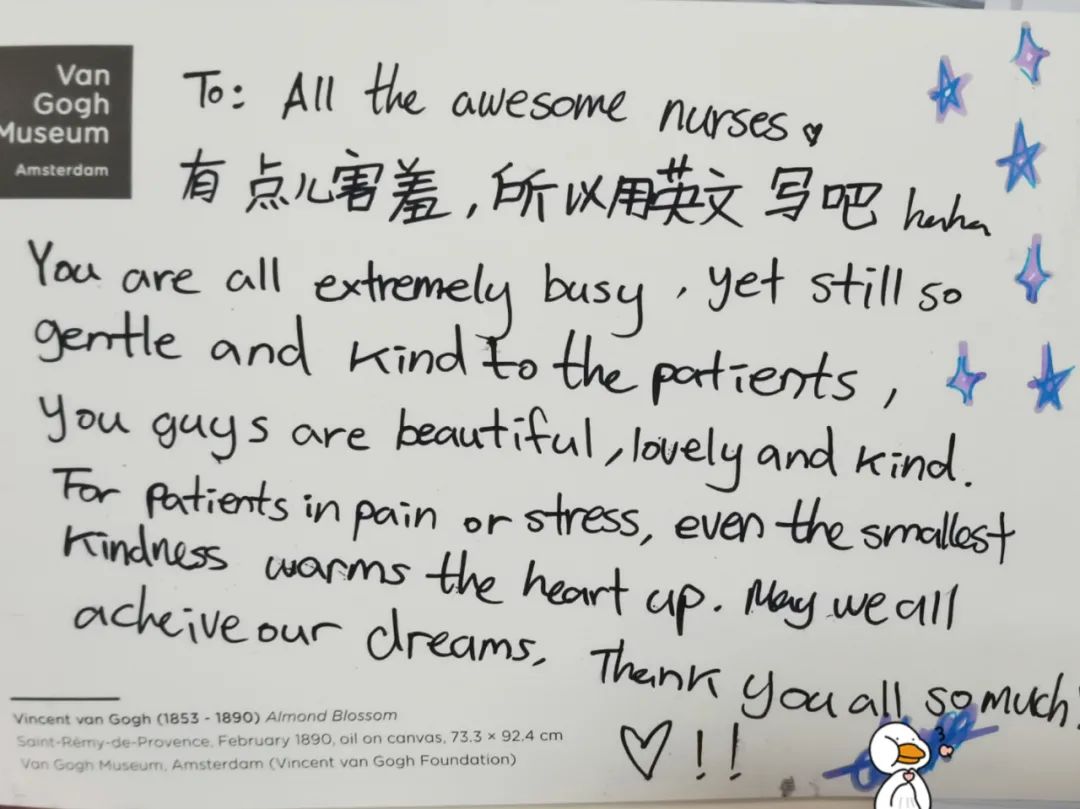 Van
Gogh
Museum
Amsterdam
To: All the awesome nurses
有点儿害羞,所以用英文写吧 haha
You are all extremely busy, yet still so
gentle and kind to the patients,
you guys are beautiful, lovely and kind.
For patients in pain or stress, even the smallest
kindness warms the heart up. May we all
acheive our dreams. Thank you all so much!
!!
Vincent van Gogh (1853 - 1890) Almond Blossom
Saint-Rémy-de-Provence, February 1890, oil on canvas, 73.3 × 92.4 cm
Van Gogh Museum, Amsterdam (Vincent van Gogh Foundation)